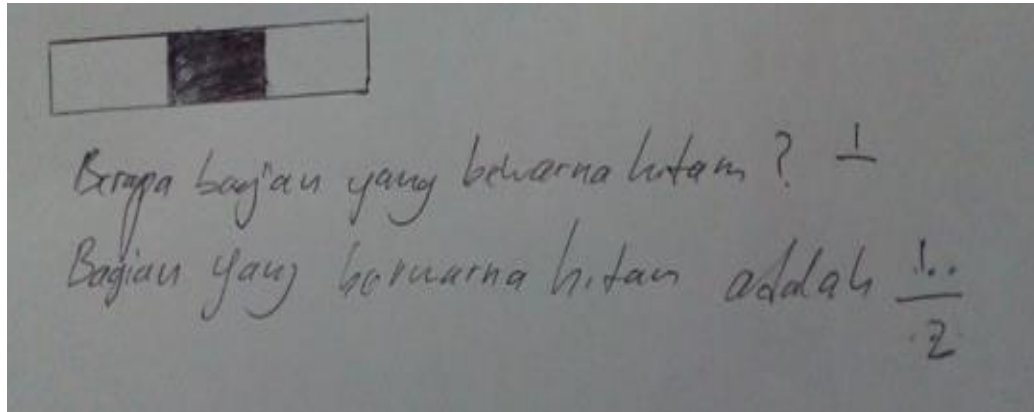 Berapa bagian yang bewarna hitam? 1
Bagian yang berwarna hitam adalah 1../.2.